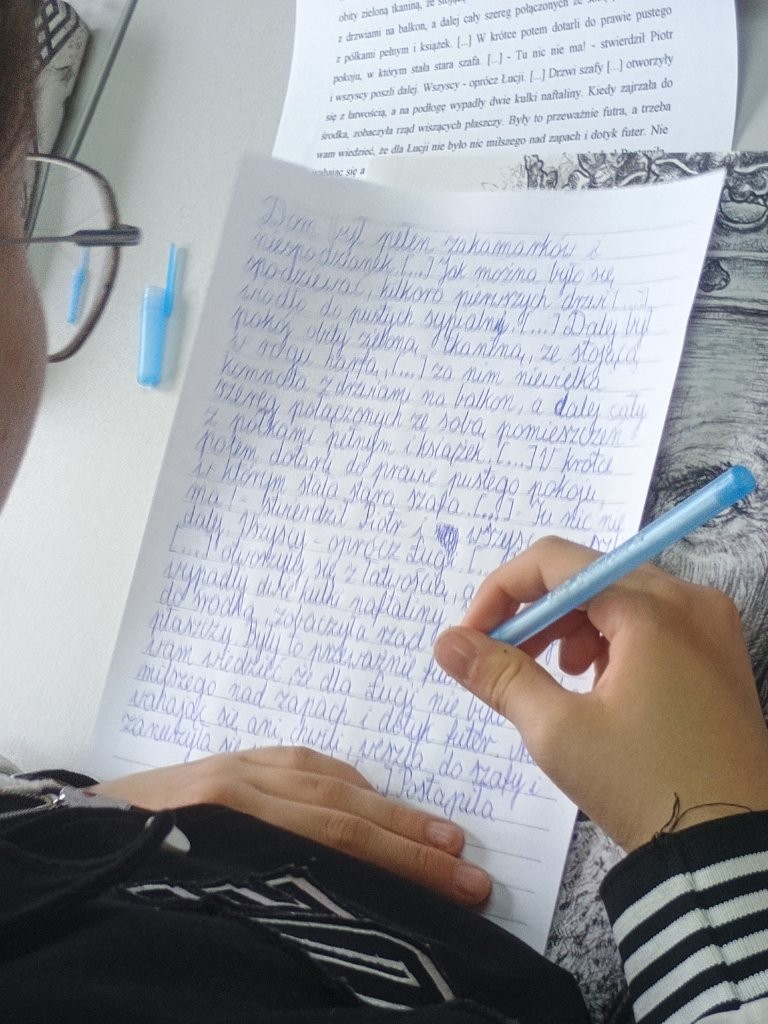 obity zieloną tkaniną, ze stojącą
z drzwiami na balkon, a dalej cały szereg połączonych ze
z półkami pełnym i książek. [...] W krótce potem dotarli do prawie pustego
pokoju, w którym stała stara szafa. [...] - Tu nic nie ma! - stwierdził Piotr
i wszyscy poszli dalej. Wszyscy - oprócz Łucji. [...] Drzwi szafy [...] otworzyły
się z łatwością, a na podłogę wypadły dwie kulki naftaliny. Kiedy zajrzała do
środka, zobaczyła rząd wiszących płaszczy. Były to przeważnie futra, a trzeba
wam wiedzieć, że dla Łucji nie było nic milszego nad zapach i dotyk futer. Nie
się a
Dom był pełen zakamarków i
niespodzianek. [...] Jak można było się
spodziewać, kilkoro pierwszych drzwi [...]
wiodło do pustych sypialny. [...] Dalej był
pokój obity zieloną tkaniną, ze stojącą
w rogu harfą, [...] za nim niewielka
komnata z drzwiami na balkon, a dalej cały
szereg połączonych ze sobą pomieszczeń
z półkami pełnym i książek. [...] W krótce
potem dotarli do prawie pustego pokoju,
w którym stała stara szafa. [...] - Tu nic nie
ma! - stwierdził Piotr i
dalej. Wszyscy - oprócz
[...] otworzyły się z łatwością, a
wypadły dwie kulki naftaliny
do środka, zobaczyła rząd
płaszczy. Były to przeważnie
wam wiedzieć, że dla Łucji nie
milszego nad zapach i dotyk futer.
wahając się ani chwili, weszła do szafy i
zanurzyła się Postąpiła